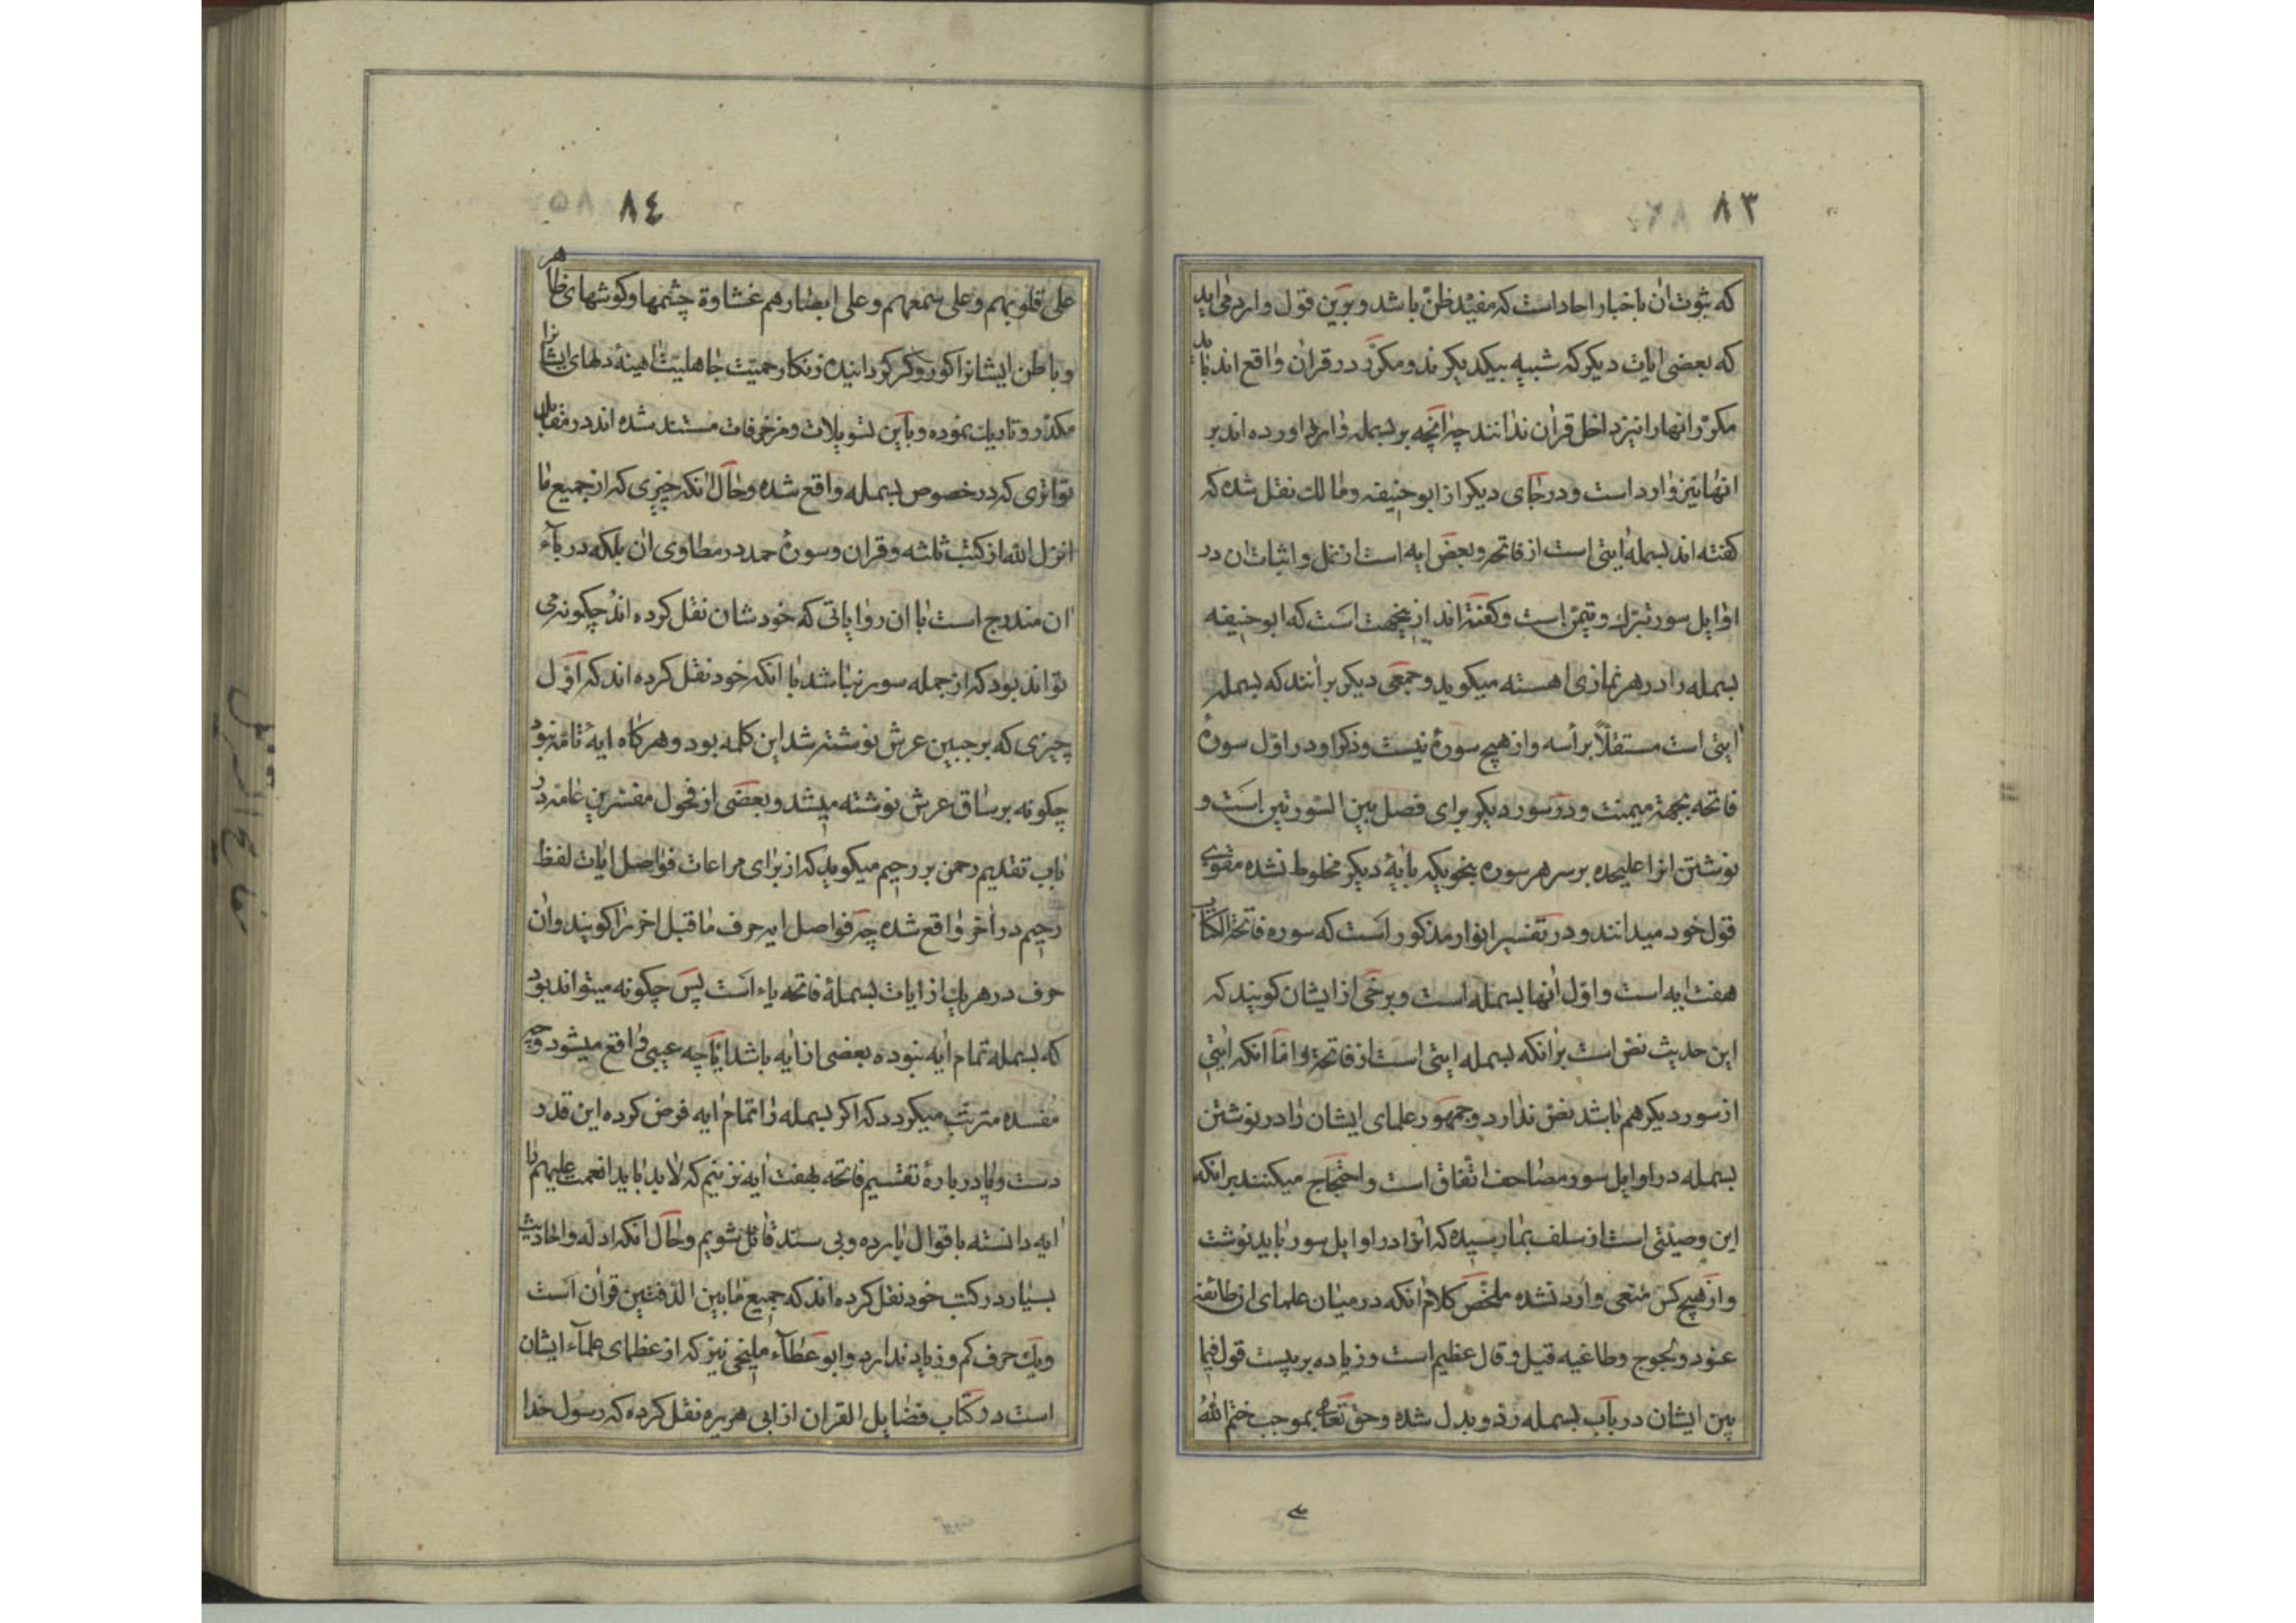 ٨٣
که ثبوت ان باخبار احاد است که مفید ظن باشد و برین قول وارد می اید
که بعضی ایات دیکر که شبیه بیکدیکرند و مکرر در قران واقع اند باید
مکرر انها را نیز داخل قران ندانند چه انچه بر بسمله وارد اورده اند بر
انها نیز وارد است و در جای دیکر از ابو حنیفه و مالک نقل شده که
کفته اند بسمله ایتی است از فاتحه و بعض ایه است از نمل و اثبات ان در
اوایل سور تبرک و تیمن است و کفته اند ازینجهت است که ابو حنیفه
بسمله را در هر نمازی اهسته میکوید و جمعی دیکر برانند که بسمله
ایتی است مستقلاً برأسه و از هیچ سورۀ نیست و ذکر او در اول سورۀ
فاتحه بجهة میمنت و در سور دیکر برای فصل بین السورتین است و
نوشتن انرا علیحده بر سر هر سوره بنحویکه بایۀ دیکر مخلوط نشده مقوی
قول خود میدانند و در تفسیر انوار مذکور است که سوره فاتحة الکتاب
هفت ایه است و اول انها بسمله است و برخی از ایشان کویند که
این حدیث نص است برانکه بسمله ایتی است از فاتحة و اما انکه ایتی
از سور دیکر هم باشد نص ندارد و جمهور علمای ایشان را در نوشتن
بسمله در اوایل سور مصاحف اتفاق است و احتجاج میکنند برانکه
این وصیتی است از سلف بما رسیده که انرا در اوایل سور باید نوشت
و از هیچ کس منعی وارد نشده ملخص کلام انکه در میان علمای ان طائفه
عنود و لجوج و طاغیه قیل و قال عظیم است و زیاده بر بیست قول فیما
بین ایشان در باب بسمله رد و بدل شده و حق تعالی بموجب ختم الله
٨٤
علی قلوبهم و علی سمعهم و علی ابصارهم غشاوة چشمها و کوشهای ظاهر
و باطن ایشانرا کور و کر کردانیده زنکار حمیت جاهلیت اینۀ دلهای ایشانرا
مکدر و تاریک نموده و باین تسویلات و مزخرفات مستند شده اند در مقابل
تواتری که در خصوص بسمله واقع شده و حال انکه چیزی که از جمیع ما
انزل الله از کتب ثلثه و قران و سورۀ حمد در مطاوی ان بلکه در باء
ان مندرج است با ان روایاتی که خودشان نقل کرده اند چکونه می
تواند بود که از جمله سور نباشد با انکه خود نقل کرده اند که اول
چیزی که بر جبین عرش نوشته شد این کلمه بود و هر کاه ایۀ تامه نبود
چکونه بر ساق عرش نوشته میشد و بعضی از فحول مفسرین عامه در
باب تقدیم رحمن بر رحیم میکوید که از برای مراعات فواصل ایات لفظ
رحیم در اخر واقع شده چه فواصل ایه حرف ما قبل اخر را کویند و ان
حرف در هر یک از ایات بسملۀ فاتحه یاء است پس چکونه میتواند بود
که بسمله تمام ایه نبوده بعضی از ایه باشد ایا چه عیبی واقع میشود و چه
مفسده مترتب میکردد که اکر بسمله را تمام ایه فرض کرده این قدر
دست و پا در بارۀ تقسیم فاتحه بهفت ایه نزنیم که لابد باید انعمت علیهم را
ایه دانسته باقوال بارده و بی سند قائل شویم و حال انکه ادله و احادیث
بسیار در کتب خود نقل کرده اند که جمیع ما بین الدفتین قران است
و یک حرف کم و زیاد ندارد و ابو عطاء ملیخی نیز که از عظمای علماء ایشان
است در کتاب فضایل القران از ابی هریره نقل کرده که رسول خدا